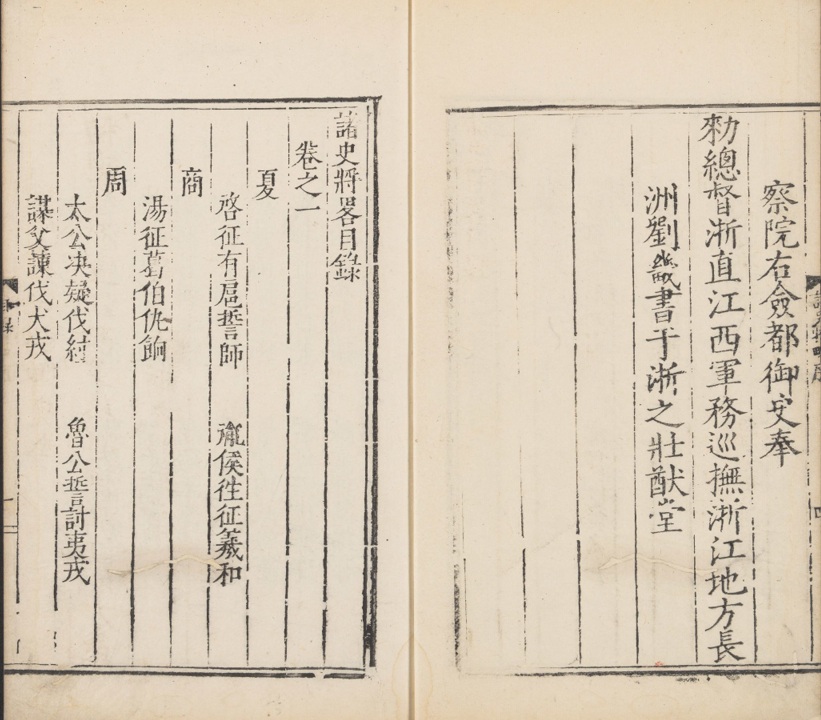 察院右僉都御史奉
勑總督浙直江西軍務巡撫浙江地方長
洲劉畿書于浙之壯猷堂
諸史將畧目錄
卷之一
夏
啓征有扈誓師 胤侯徃征羲和
商
湯征葛伯仇餉
周
太公决疑伐紂 魯公誓討夷戎
謀父諫伐犬戎